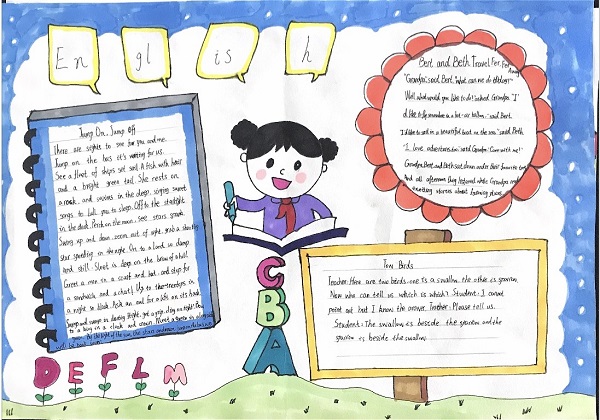 En gl is h
Jump On, Jump Off
There are sights to see for you and me.
Jump on the bus it's waiting for us.
See a fleet of ships set sail A fish with hair
and a bright green tail She nests on
a rock, and swims in the deep, singing sweet
songs to lull you to sleep. Off to the starlight
in the dark. Perch on the moon, see stars spark.
Swing up and down, zoom out of sight, grab a shooting
star speeding in the night. On to a land so damp
and still. Street is deep on the brow of a hill.
Greet a man in a scarf and hat, and stop for
a sandwich and a chat! Up to the treetops in
a night so black. Ask an owl for a lift on his back.
Swoop and swerve in daring flight, get a grip, cling on tight! Bow
to a king in a cloak and crown.
Bert and Beth Travel Far, Far
Away
"Grandpa," said Bert, "What can we do
Well, what would you like to do? asked Grandpa. "I
like to be said Bert.
"I'd like to sail in a beautiful boat on the sea," said Beth.
"I love adventures, too," said Grandpa. Come with me!"
Grandpa, Bert, and Beth sat down under their favorite tree.
And all afternoon they listened while Grandpa read
exciting stories about faraway places.
C
B
A
Two Birds
Teacher: Here are two birds. one is a swallow. the other is sparrow.
Now who can tell us which is which? Student: I cannot
point out but I know the answer. Teacher: Please tell us.
Student: The swallow is beside the sparrow and the
sparrow is beside the swallow.
D E F L M